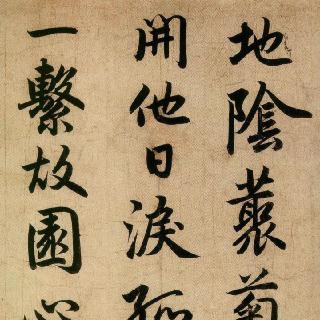 地陰藂菊
開他日淚孤
一繫故園心